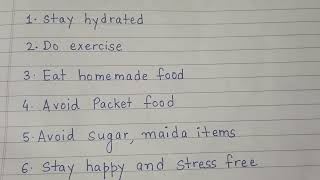 1. Stay hydrated
2. Do exercise
3. Eat homemade food
4. Avoid Packet food
5. Avoid Sugar, maida items
6. Stay happy and stress free